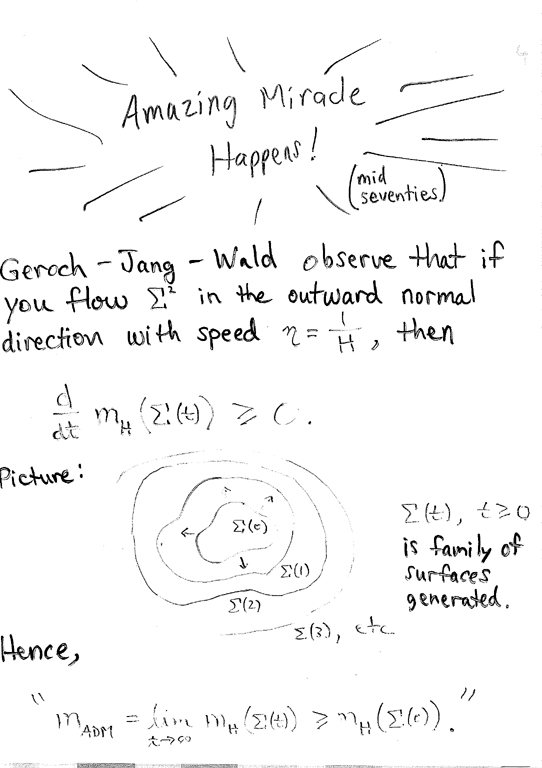 Amazing Miracle
Happens!
(mid
seventies)
Geroch - Jang - Wald observe that if
you flow Σ² in the outward normal
direction with speed η = 1/H, then
d/dt m_H(Σ(t)) ≥ 0.
Picture:
Σ(0)
Σ(1)
Σ(2)
Σ(3), etc
Σ(t), t≥0
is family of
surfaces
generated.
Hence,
"m_ADM = lim_{t→∞} m_H(Σ(t)) ≥ m_H(Σ(0))."